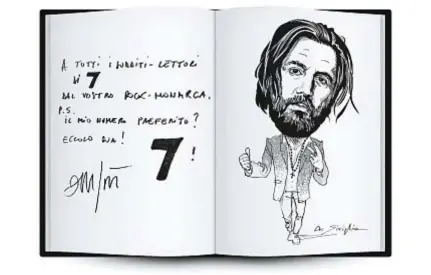 A TUTTI I SUDDITI-LETTORI
DI 7
DAL VOSTRO ROCK-MONARCA.
P.S.
IL MIO NUMERO PREFERITO?
ECCOLO QUA!
7!